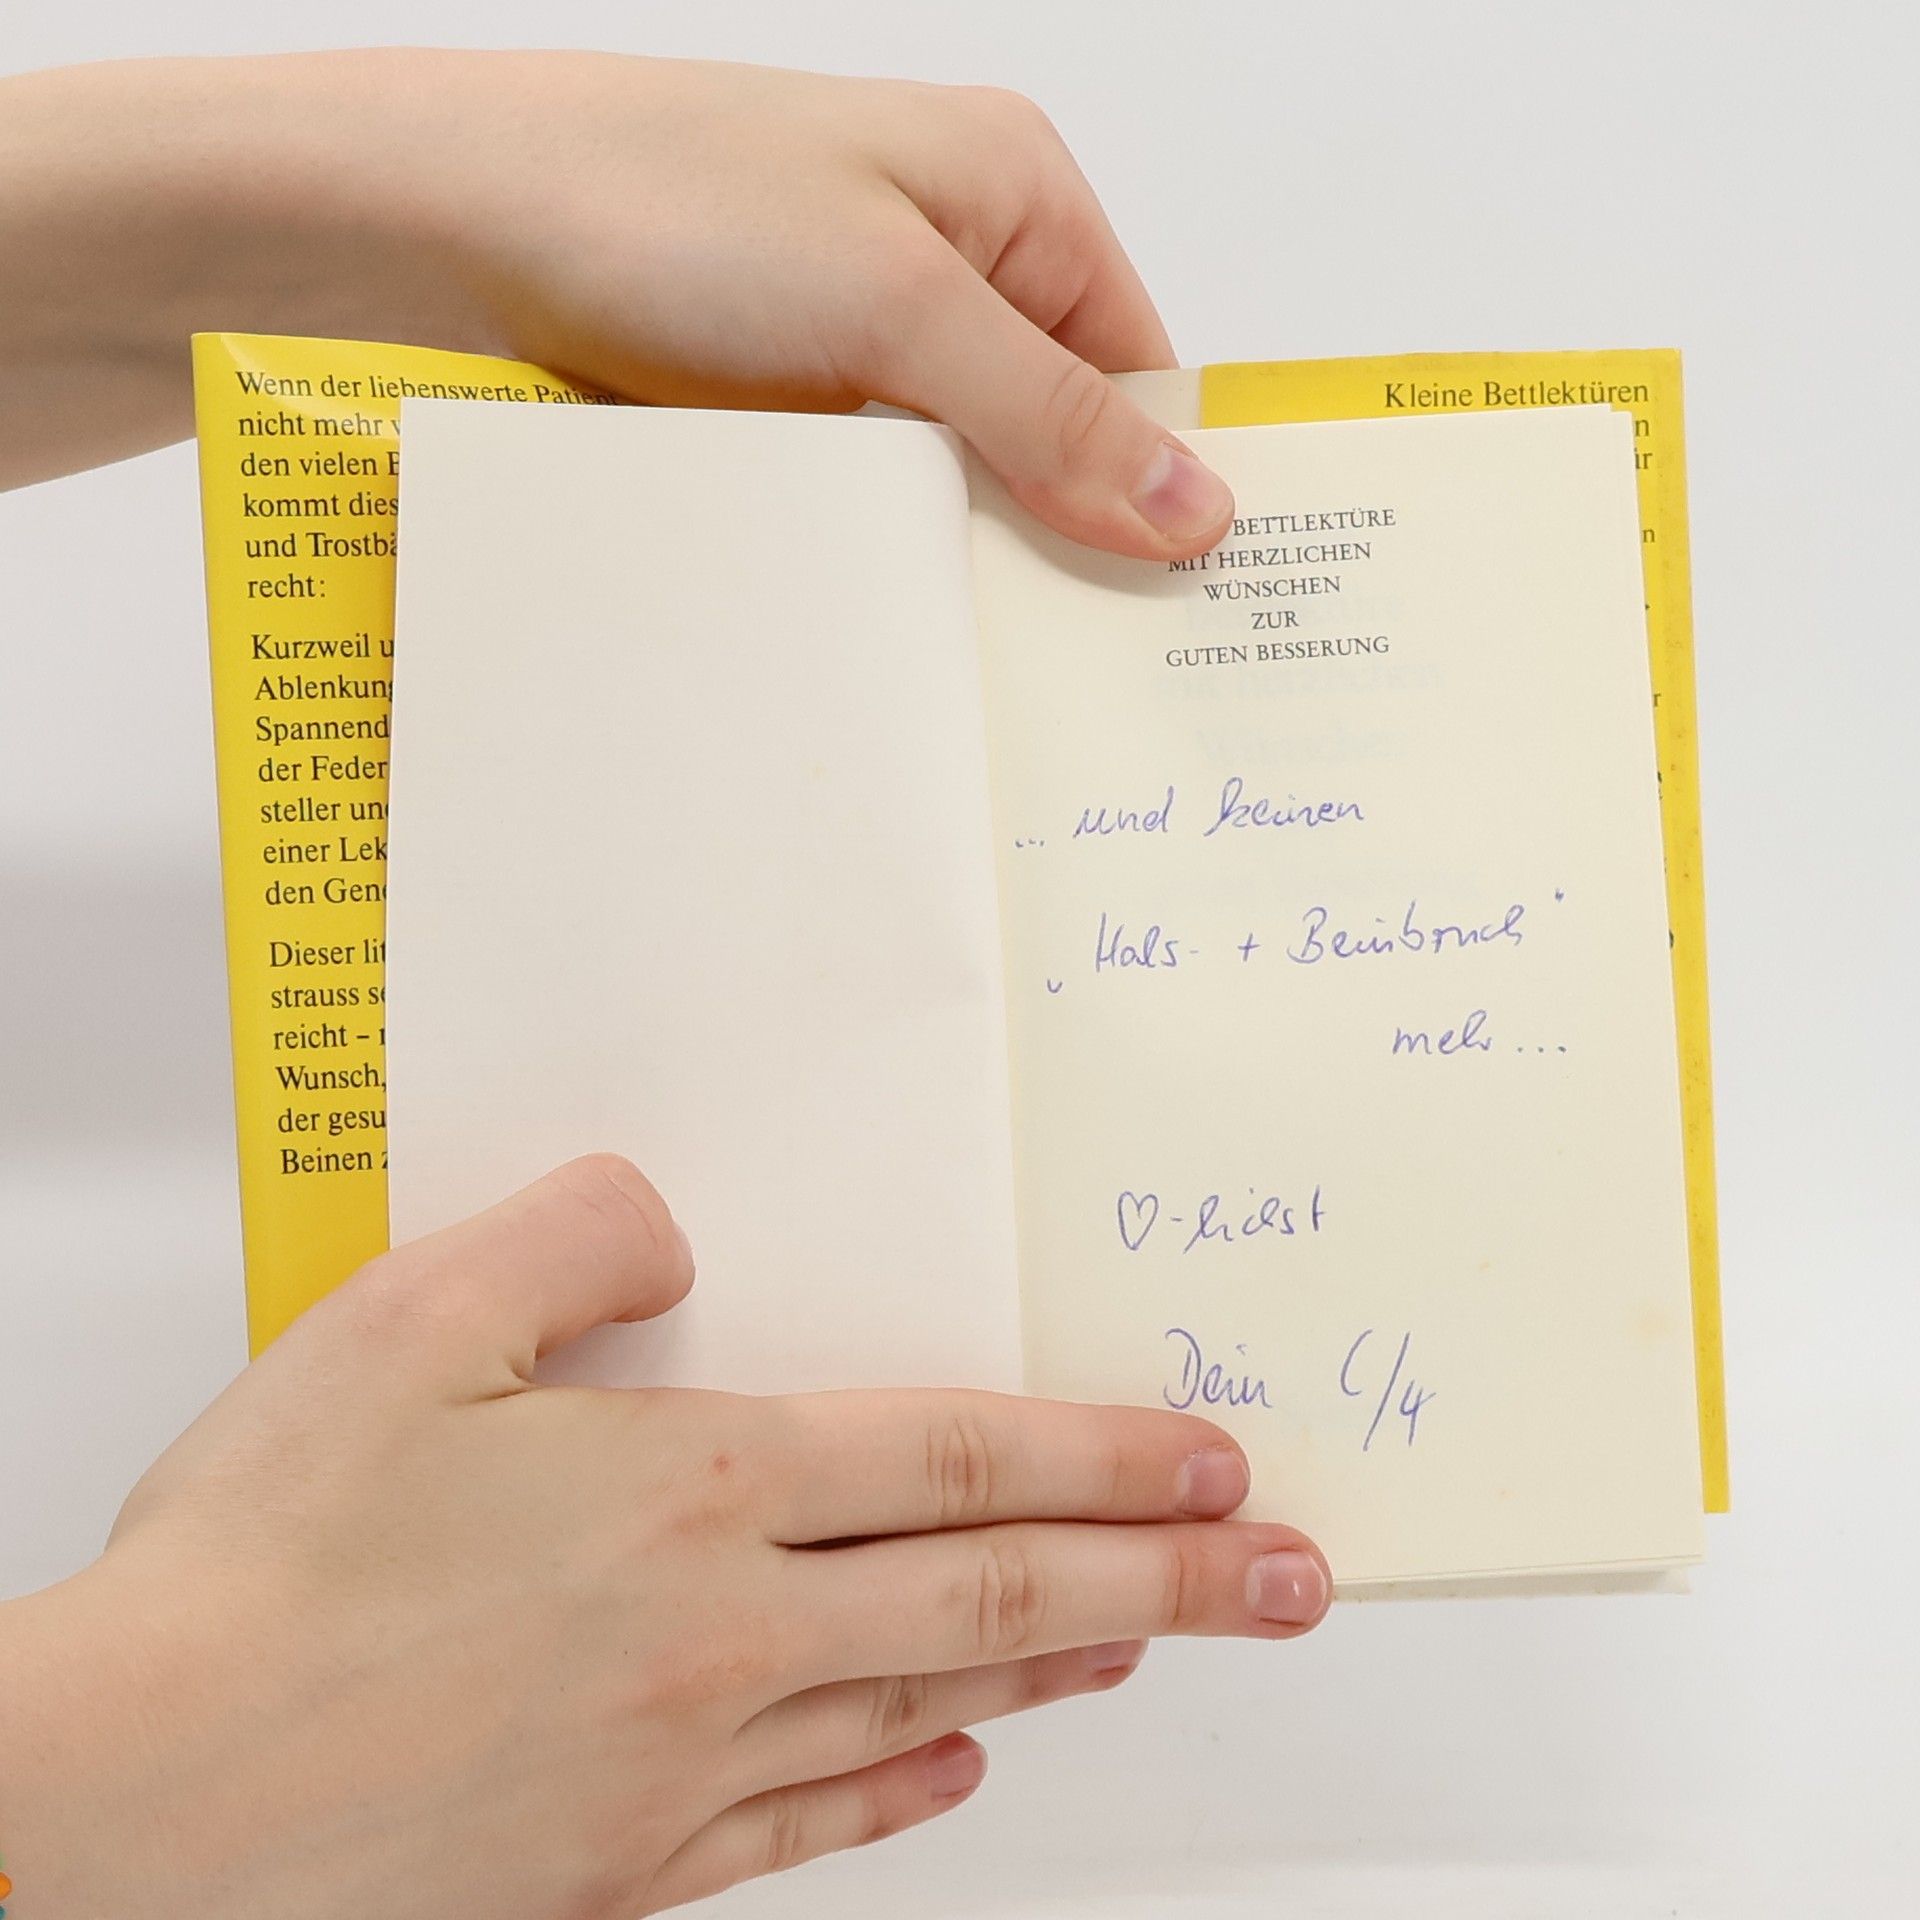 Wenn der liebenswerte Patient
nicht mehr
den vielen
kommt dies
und
recht:
Kurzweil
Ablenkung
Spannend
der Feder
steller
einer Lek
den
Dieser
strauss
reicht –
Wunsch,
der gesu
Beinen
Kleine Bettlektüren
BETTLEKTÜRE
MIT HERZLICHEN
WÜNSCHEN
ZUR
GUTEN BESSERUNG
... und keinen
„Hals- + Beinbruch“
mehr ...
♡-lichst
Dein C/4